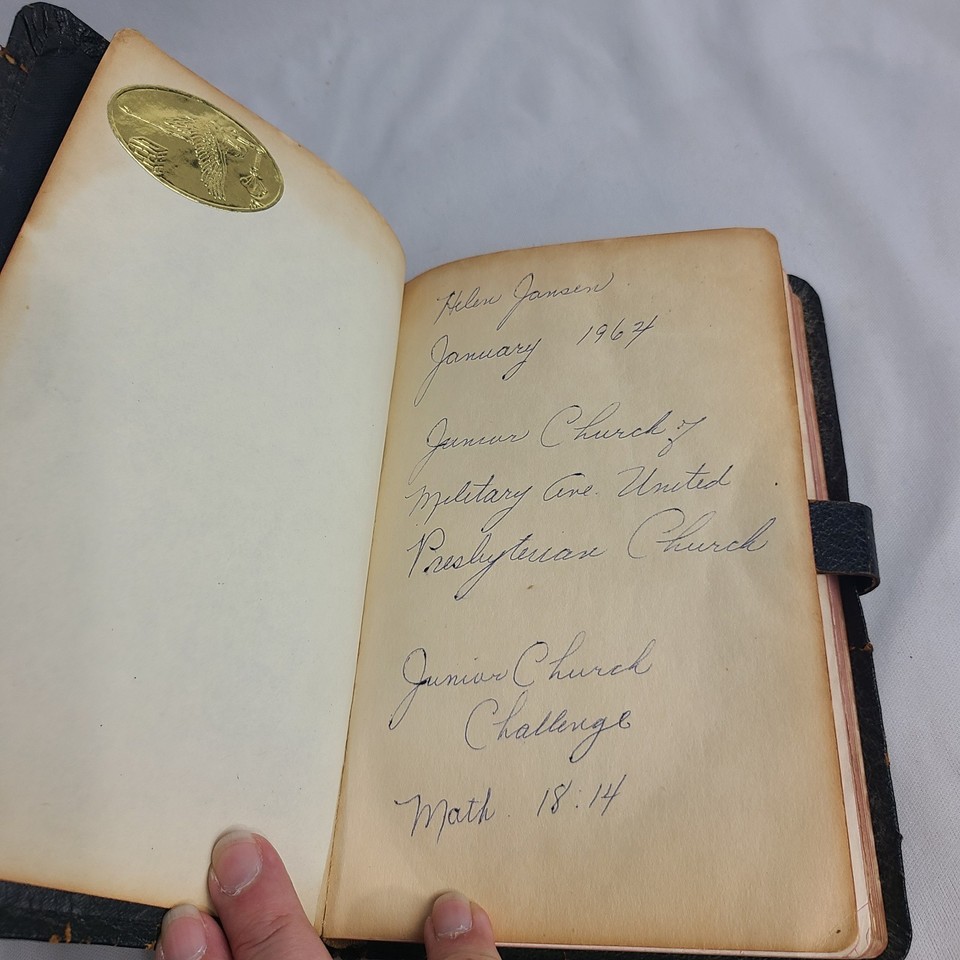 Helen Jansen
January 1964
Junior Church of
Military Ave. United
Presbyterian Church
Junior Church
Challenge
Math. 18:14